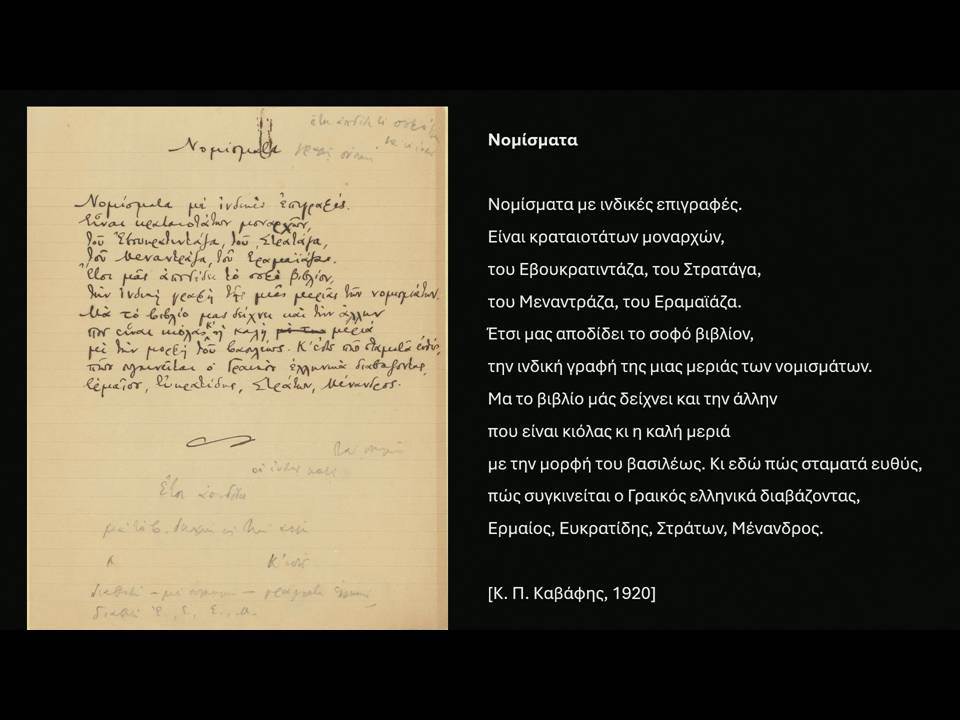 Νομίσματα
Νομίσματα μὲ ἰνδικὲς ἐπιγραφές.
Εἶναι κραταιοτάτων μοναρχῶν,
τοῦ Ἐβουκρατιντάζα, τοῦ Στρατάγα,
τοῦ Μεναντράζα, τοῦ Ἐραμαϊάζα.
Ἔτσι μᾶς ἀποδίδει τὸ σοφὸ βιβλίον,
τὴν ἰνδικὴ γραφὴ τῆς μιᾶς μεριᾶς τῶν νομισμάτων.
Μὰ τὸ βιβλίο μας δείχνει καὶ τὴν ἄλλην
ποὺ εἶναι κιόλας κ' ἡ καλὴ μεριὰ
μὲ τὴν μορφὴ τοῦ βασιλέως. Κ' ἐδῶ πῶς σταματᾶ εὐθύς,
πῶς συγκινεῖται ὁ Γραικὸς ἑλληνικὰ διαβάζοντας,
Ἑρμαῖος, Εὐκρατίδης, Στράτων, Μένανδρος.
Ἔτσι
Κ' ἐδῶ
Νομίσματα
Νομίσματα με ινδικές επιγραφές.
Είναι κραταιοτάτων μοναρχών,
του Εβουκρατιντάζα, του Στρατάγα,
του Μεναντράζα, του Εραμαϊάζα.
Έτσι μας αποδίδει το σοφό βιβλίον,
την ινδική γραφή της μιας μεριάς των νομισμάτων.
Μα το βιβλίο μάς δείχνει και την άλλην
που είναι κιόλας κι η καλή μεριά
με την μορφή του βασιλέως. Κι εδώ πώς σταματά ευθύς,
πώς συγκινείται ο Γραικός ελληνικά διαβάζοντας,
Ερμαίος, Ευκρατίδης, Στράτων, Μένανδρος.
[Κ. Π. Καβάφης, 1920]